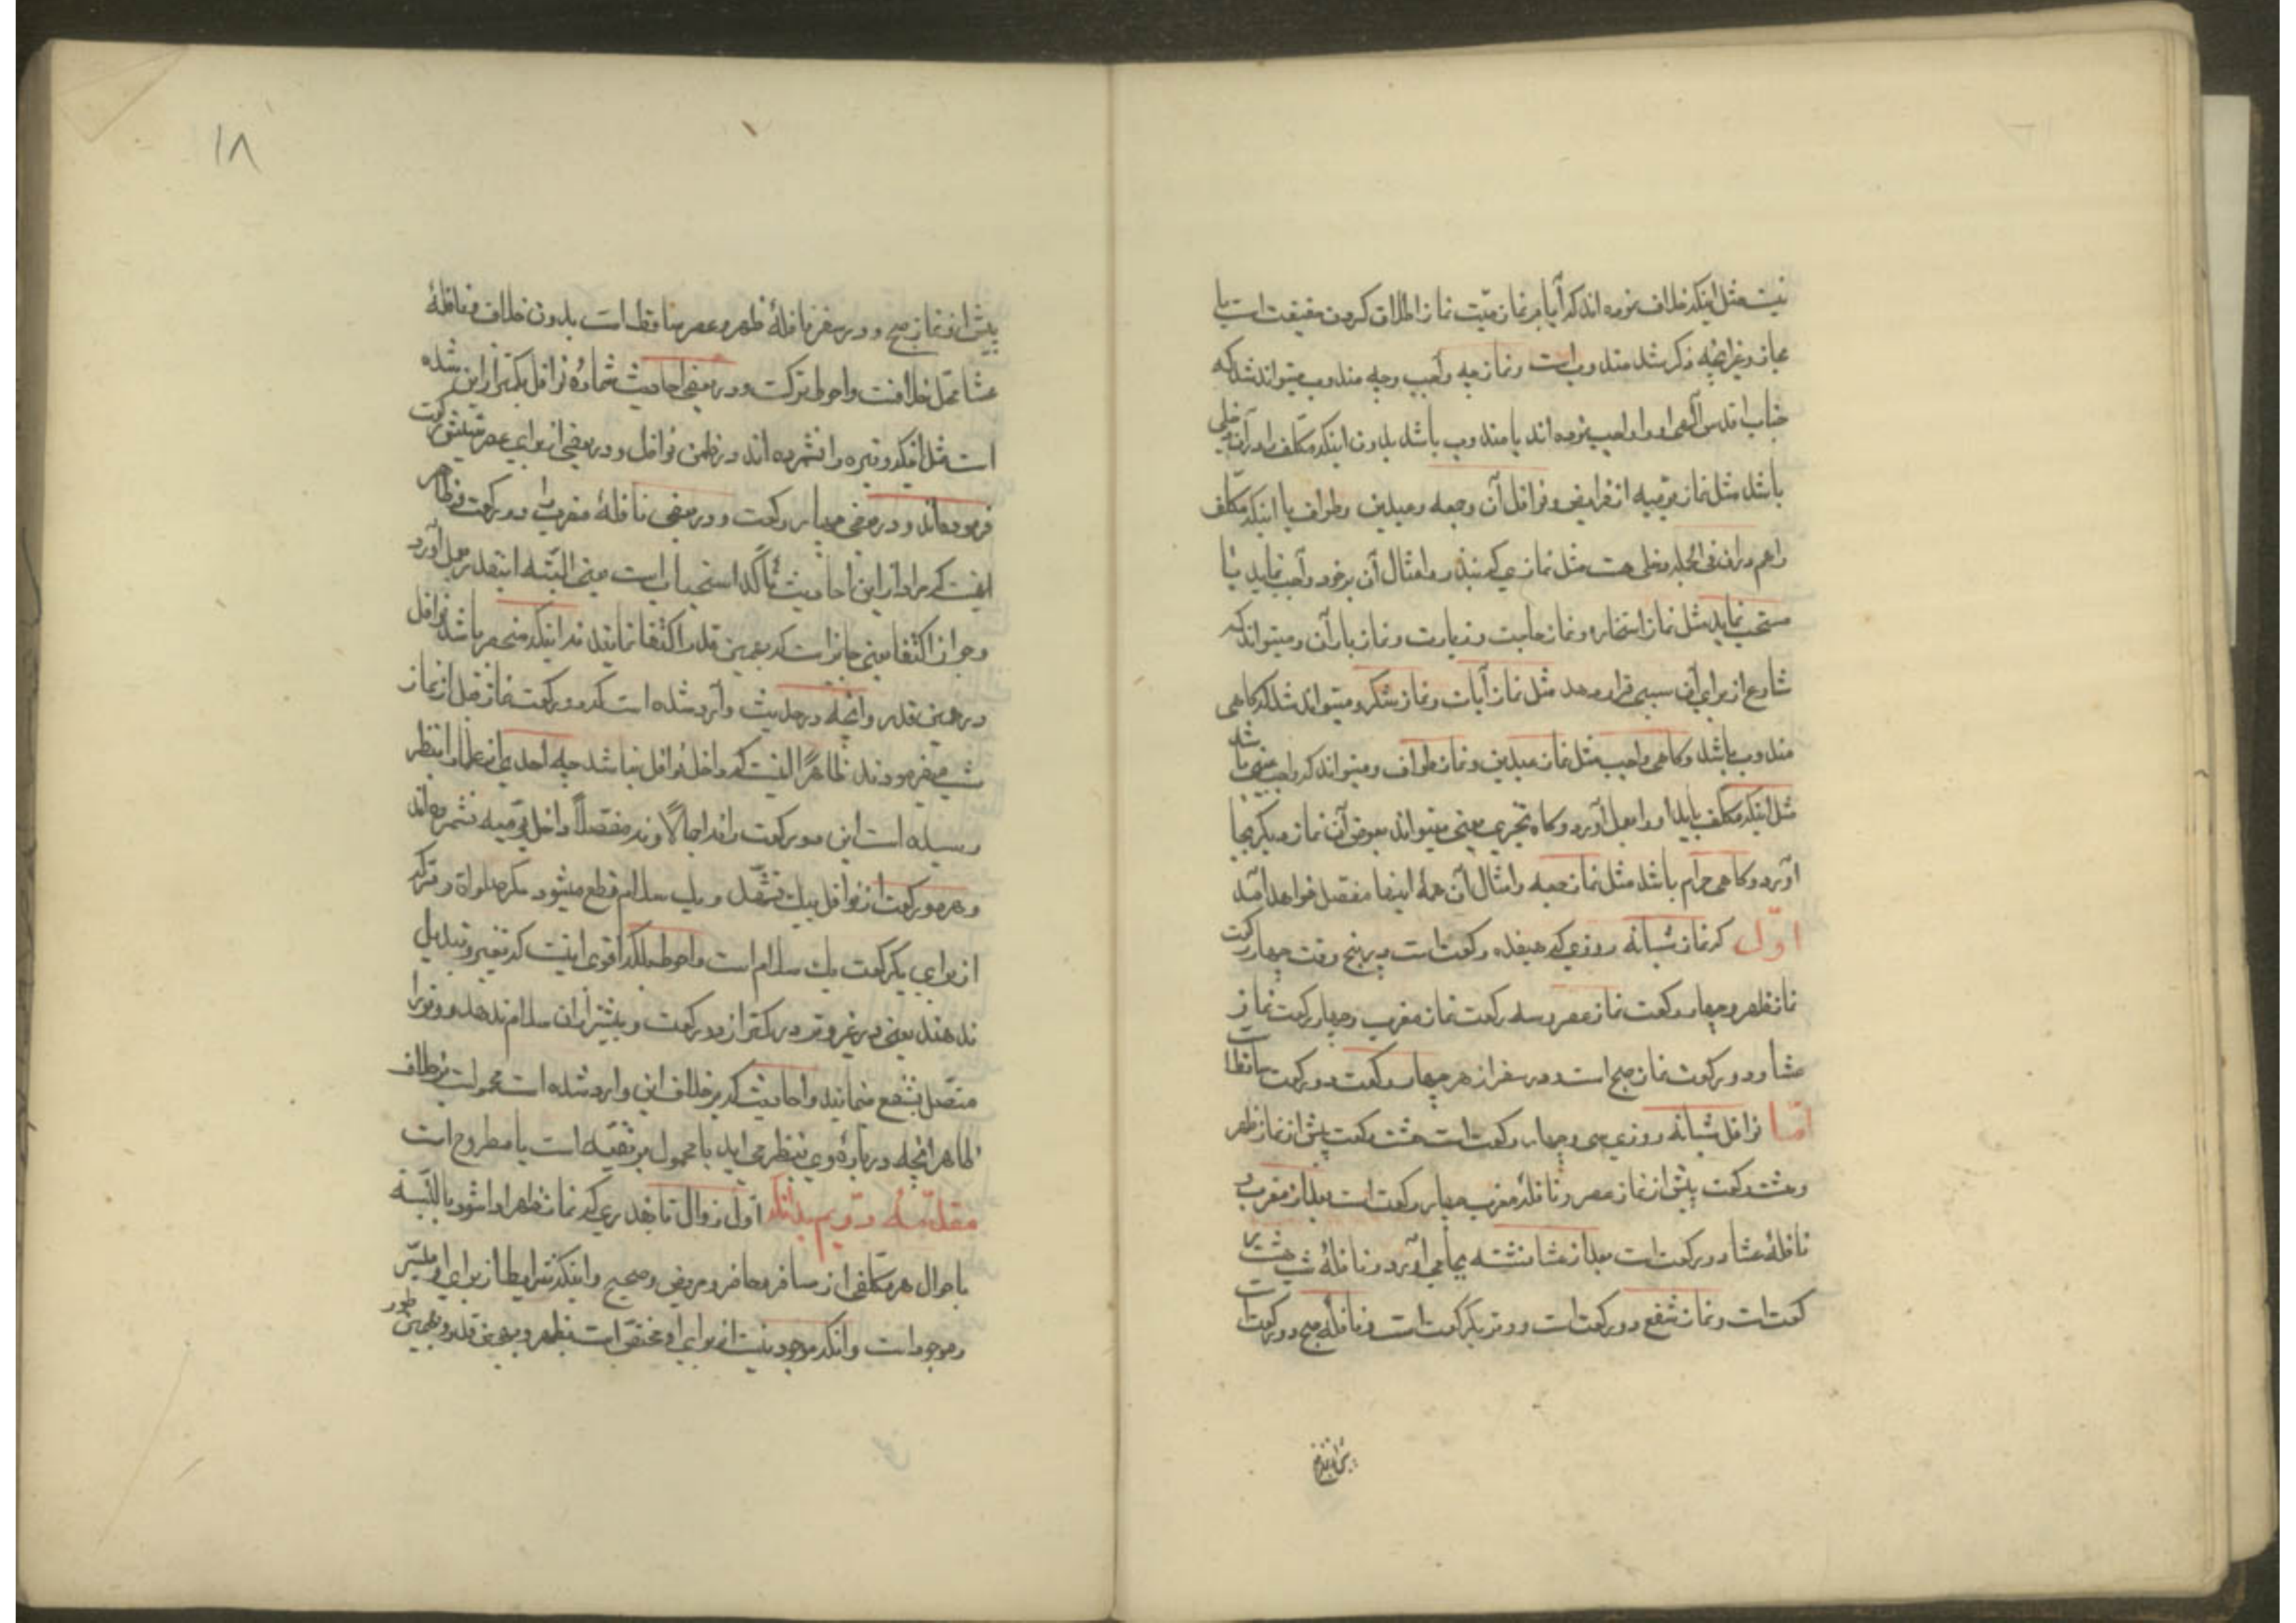 نیست مثل اینکه خلاف نموده اند که آیا بر نماز میّت نماز اطلاق کردن حقیقت است یا
مجاز و غیر آنچه ذکر شد مندوب است و نماز چه واجب و چه مندوب میتواند شد که
جناب اقدس آلهی او را واجب نموده اند یا مندوب باشد بدون اینکه مکلف را در آن دخلی
باشد مثل نماز یومیه از فرایض و نوافل آن و جمعه و عیدین و طواف یا اینکه مکلّف
را هم در آن فی الجمله دخلی هست مثل نمازی که بنذر و امثال آن بر خود واجب نماید یا
مستحب نماید مثل نماز استخاره و نماز حاجت و زیارت و نماز باران و میتواند که
شارع از برای آن سببی قرار دهد مثل نماز آیات و نماز شکر و میتواند شد که گاهی
مندوب باشد و گاهی واجب مثل نماز عیدین و نماز طواف و میتواند که واجب عینی باشد
مثل اینکه مکلف باید او را بعمل آورد و گاه تخییری یعنی میتواند بعوض آن نماز دیگر بجا
آورد و گاهی حرام باشد مثل نماز جمعه و امثال آن همهٔ اینها مفصل خواهد آمد
اوّل که نماز شبانه روزی که هیفده رکعت است در پنج وقت چهار رکعت
نماز ظهر و چهار رکعت نماز عصر و سه رکعت نماز مغرب و چهار رکعت نماز
عشا و دو رکعت نماز صبح است و در سفر از هر چهار رکعت دو رکعت ساقط است
امّا نوافل شبانه روزی سی و چهار رکعت است هشت رکعت پیش از نماز ظهر
و هشت رکعت پیش از نماز عصر و نافلهٔ مغرب چهار رکعت است بعد از مغرب و
نافلهٔ عشا دو رکعت است بعد از عشا نشسته بجا می آورد و نافلهٔ شب هشت ر
کعت است و نماز شفع دو رکعت است و وتر یکرکعت است و نافلهٔ صبح دو رکعت است
پیش از نماز صبح و در سفر نافلهٔ ظهر و عصر ساقط است بدون خلاف و نافلهٔ
عشا محل خلافست و احوط ترکست و در بعضی احادیث شمارهٔ نوافل کمتر از این شده
است مثل اینکه وتیره را نشمرده اند در ضمن نوافل و در بعضی از برای عصر شش رکعت
فرموده‌اند و در بعضی چهار رکعت و در بعضی نافلهٔ مغرب را دو رکعت و ظاهر
اینست که مراد از این احادیث تأکد استحباب است یعنی البتّه اینقدر بعمل آورد
و جواز اکتفا یعنی جایز است که بهمین قدر اکتفا نمایند نه اینکه منحصر باشد نوافل
در همین قدر و آنچه در حدیث وارد شده است که دو رکعت نماز قبل از نماز
شب میفرمودند ظاهراً اینست که داخل نوافل نباشد چه احدی از علما را بنظر
رسیده است این دو رکعت را نه اجمالاً و نه مفصّلاً داخل یومیه نشمرده‌اند
و هر دو رکعت از نوافل بیک تشهّد و یک سلام قطع میشود مگر صلواة وتر که
از برای یکرکعت یک سلام است و احوط بلکه اقوی اینست که تغییر و تبدیل
ندهند یعنی در غیر وتر در کمتر از دو رکعت و بیشتر از آن سلام ندهد و وتر را
متصّل بشفع ننمایند و احادیث که بر خلاف این وارد شده است محمولست بر خلاف
ظاهر آنچه در بارهٔ وی بنظر می اید یا محمول بر تقیّه است یا مطروح است
مقدّمه دوّیم بدانکه اوّل زوال تا بقدری که نماز ظهر ادا شود بالبّته
باحوال هر مکلّفی از مسافر و حاضر و مریض و صحیح و اینکه شرایط از برای او میسّر
و موجود است و آنکه موجود نیست از برای او مختصّ است بظهر و بهمین قدر و بهمین طور